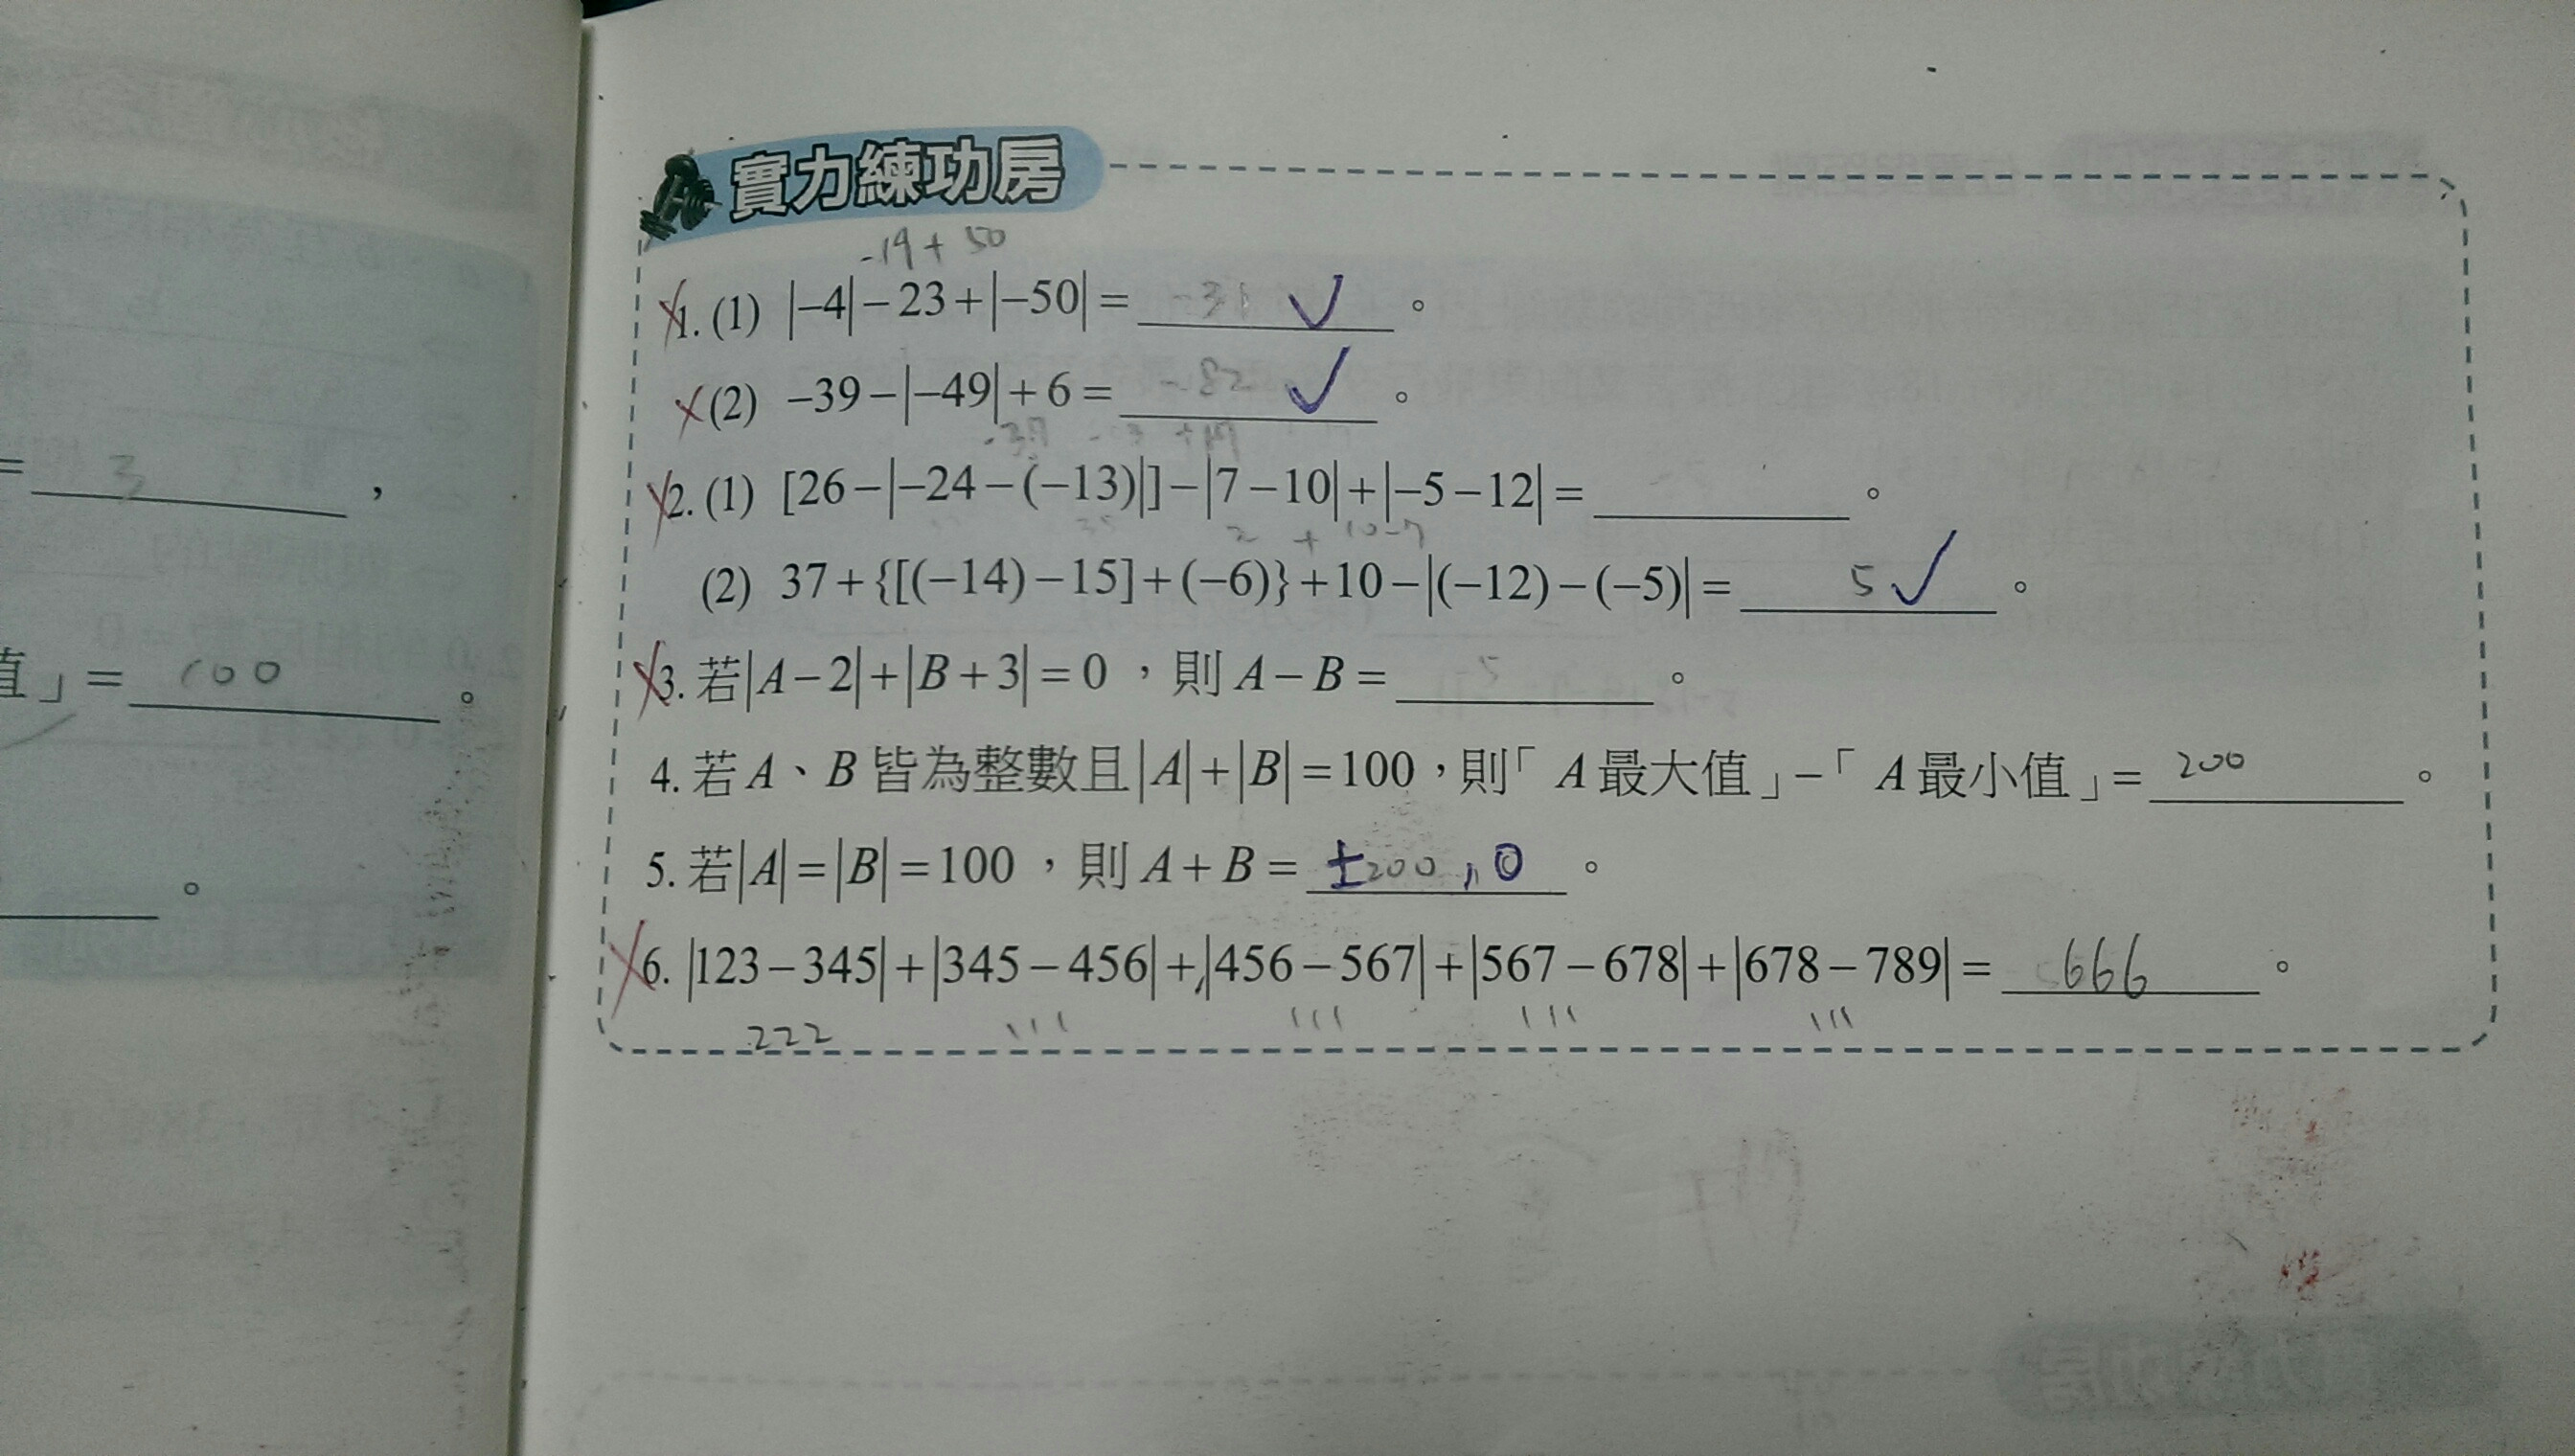 實力練功房
-19+50
1. (1) |−4|−23+|−50|= -31 ✓ 。
(2) −39−|−49|+6= -82 ✓ 。
2. (1) [26−|−24−(−13)|]−|7−10|+|−5−12|= 。
2 + 10-7
(2) 37+{[(−14)−15]+(−6)}+10−|(−12)−(−5)|= 5 ✓ 。
3. 若|A−2|+|B+3|=0，則 A−B= 5 。
4. 若 A、B 皆為整數且|A|+|B|=100，則「A 最大值」−「A 最小值」= 200 。
5. 若|A|=|B|=100，則 A+B= ±200,0 。
6. |123−345|+|345−456|+|456−567|+|567−678|+|678−789|= 666 。
222 111 111 111 111
= 3 ，
值」= 100 。
。